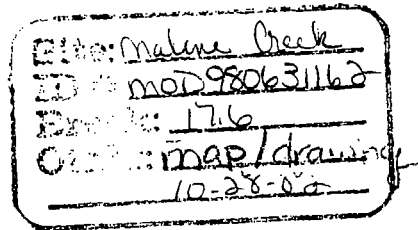 Site: Maline Creek
ID #: MOD980631162
Break: 17.6
Other: map/drawing
10-28-00